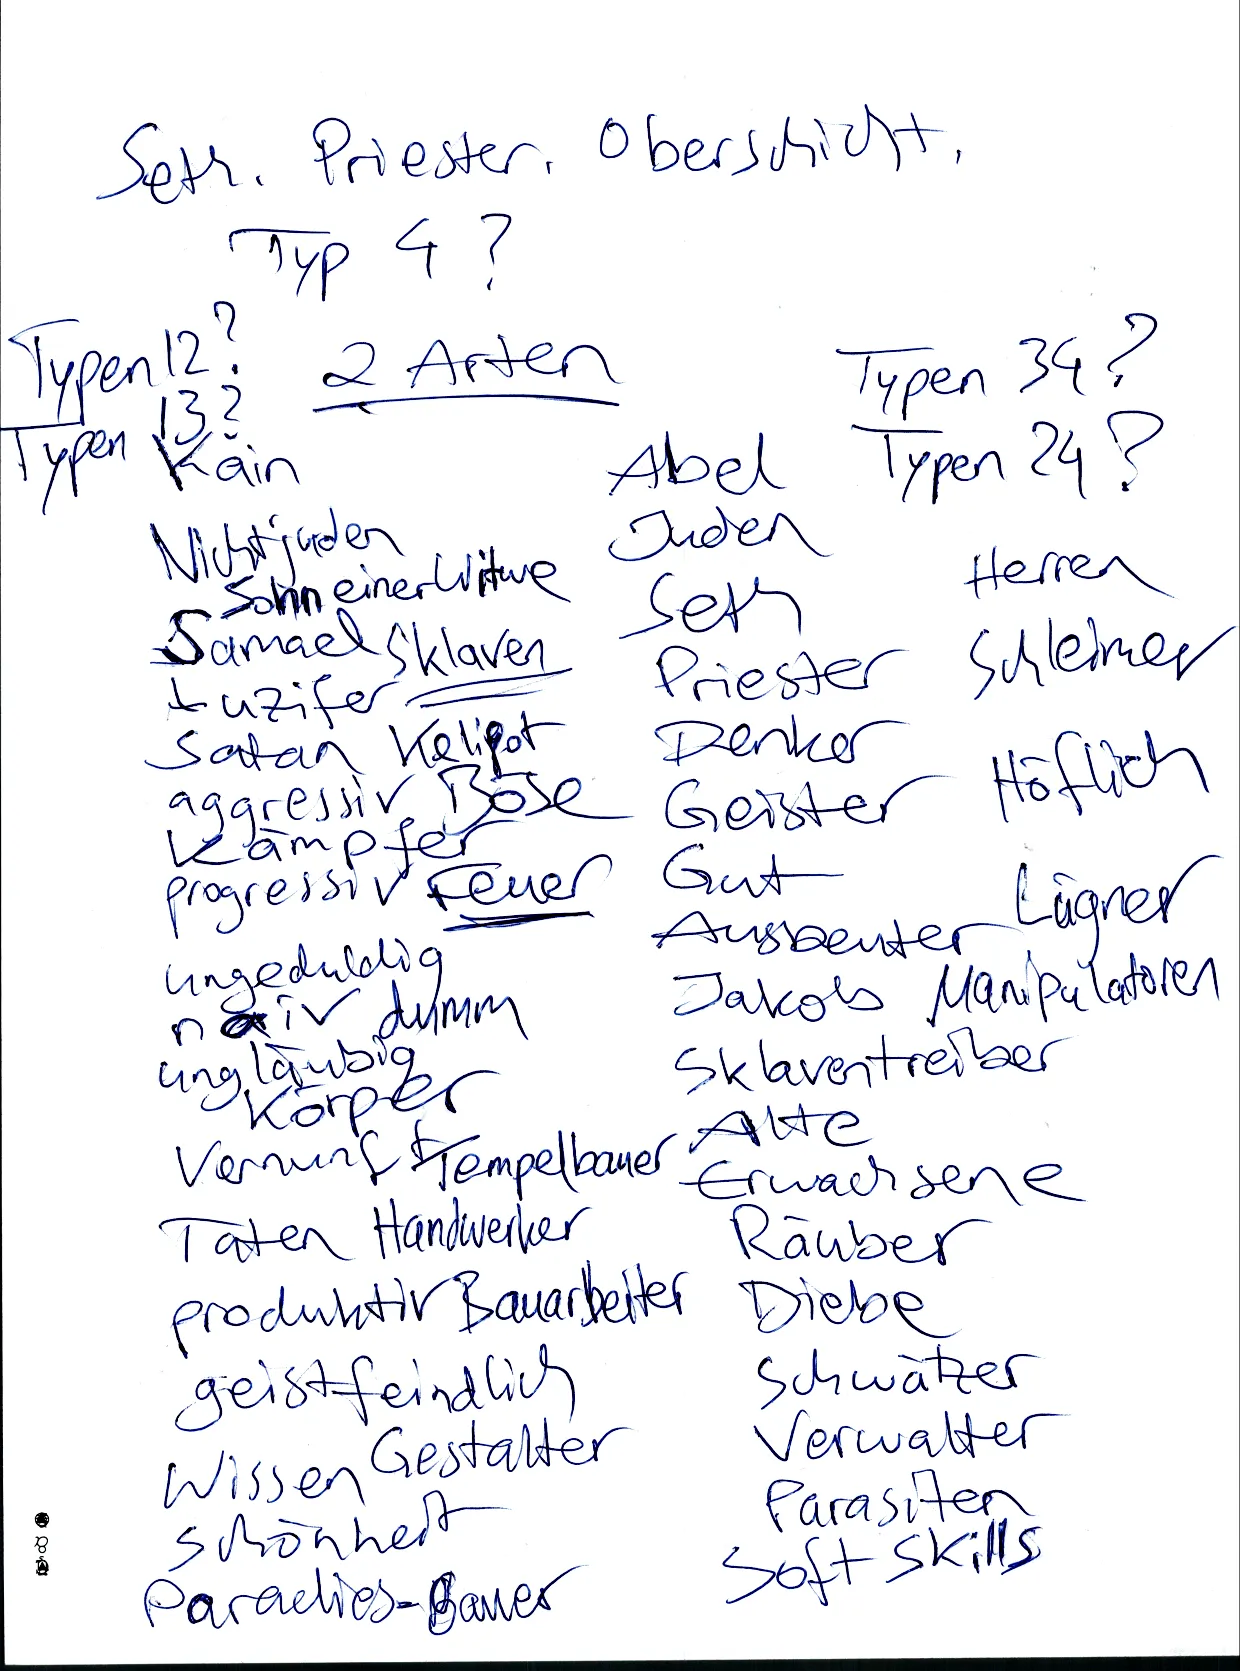 Seth. Priester. Oberschicht.
Typ 4?
Typen 12?
2 Arten
Typen 34?
Typen 13?
Typen 24?
Kain
Nichtjuden
Sohn einer Witwe
Samael Sklaven
Luzifer
Satan Kelipot
aggressiv Böse
Kämpfer
progressiv Feuer
ungeduldig
naiv dumm
ungläubig
Körper
Vernunft Tempelbauer
Taten Handwerker
produktiv Bauarbeiter
geistfeindlich
Wissen Gestalter
Schönheit
Paradies-Bauer
Abel
Juden
Seth
Priester
Denker
Geister
Gut
Ausbeuter
Jakob
Sklaventreiber
Alte
Erwachsene
Räuber
Diebe
Schwätzer
Verwalter
Parasiten
Soft Skills
Herren
Schleimer
Höflich
Lügner
Manipulatoren